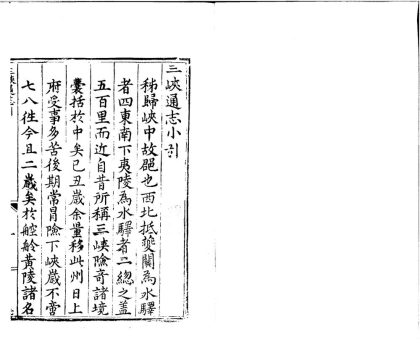 三峽通志小引
秭歸峽中故郡也西北抵夔關為水驛
者四東南下夷陵為水驛者二總之蓋
五百里而近自昔所稱三峽險奇諸境
囊括於中矣己丑歲余量移此州日上
府受事多苦後期常冒險下峽歲不啻
七八往今且二歲矣於舲艙黃陵諸名